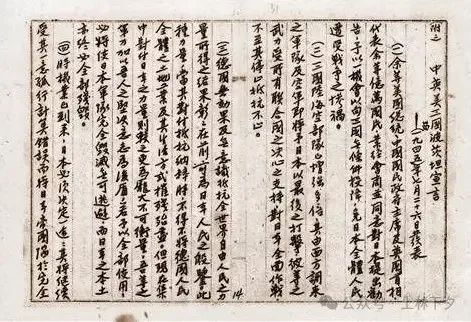 附二 中英美三國波茨坦宣言
(一九四五年七月二十六日發表)
(一)余等美國總統中國國民政府主席及英國首相
代表余等億萬國民業經會商並同意對日本提出勸
告,予以一機會以向三國無條件投降,免日本全體人民
遭受戰爭之慘禍。
(二)三國陸海空部隊已增強多倍,其由西方調來
之軍隊及空軍即將予日本以最後之打擊,彼等之
武力受所有聯合國之決心之支持對日本全面作戰
不至其停止抵抗不止。
(三)德國無效果及無意識抵抗全世界自由人民之力
量所得之結果,彰彰在前,可為日本人民之殷鑒,此
種力量當其對付抵抗納粹時不得不將德國人民
全體之土地工業及其生活方式摧殘殆盡,但現在集
中對付日本之力量則較之更為龐大不可衡量,吾等之
軍力加以吾人之堅決意志為後盾,若予以全部使用,
必將使日本軍隊完全毀滅無可逃避,而日本之本土
亦終必全部殘毀。
(四)時機業已到來,日本必須決定一途;其將繼續
受其一意孤行計算錯誤而將日本帝國陷於完全
14
公众号·上林下夕